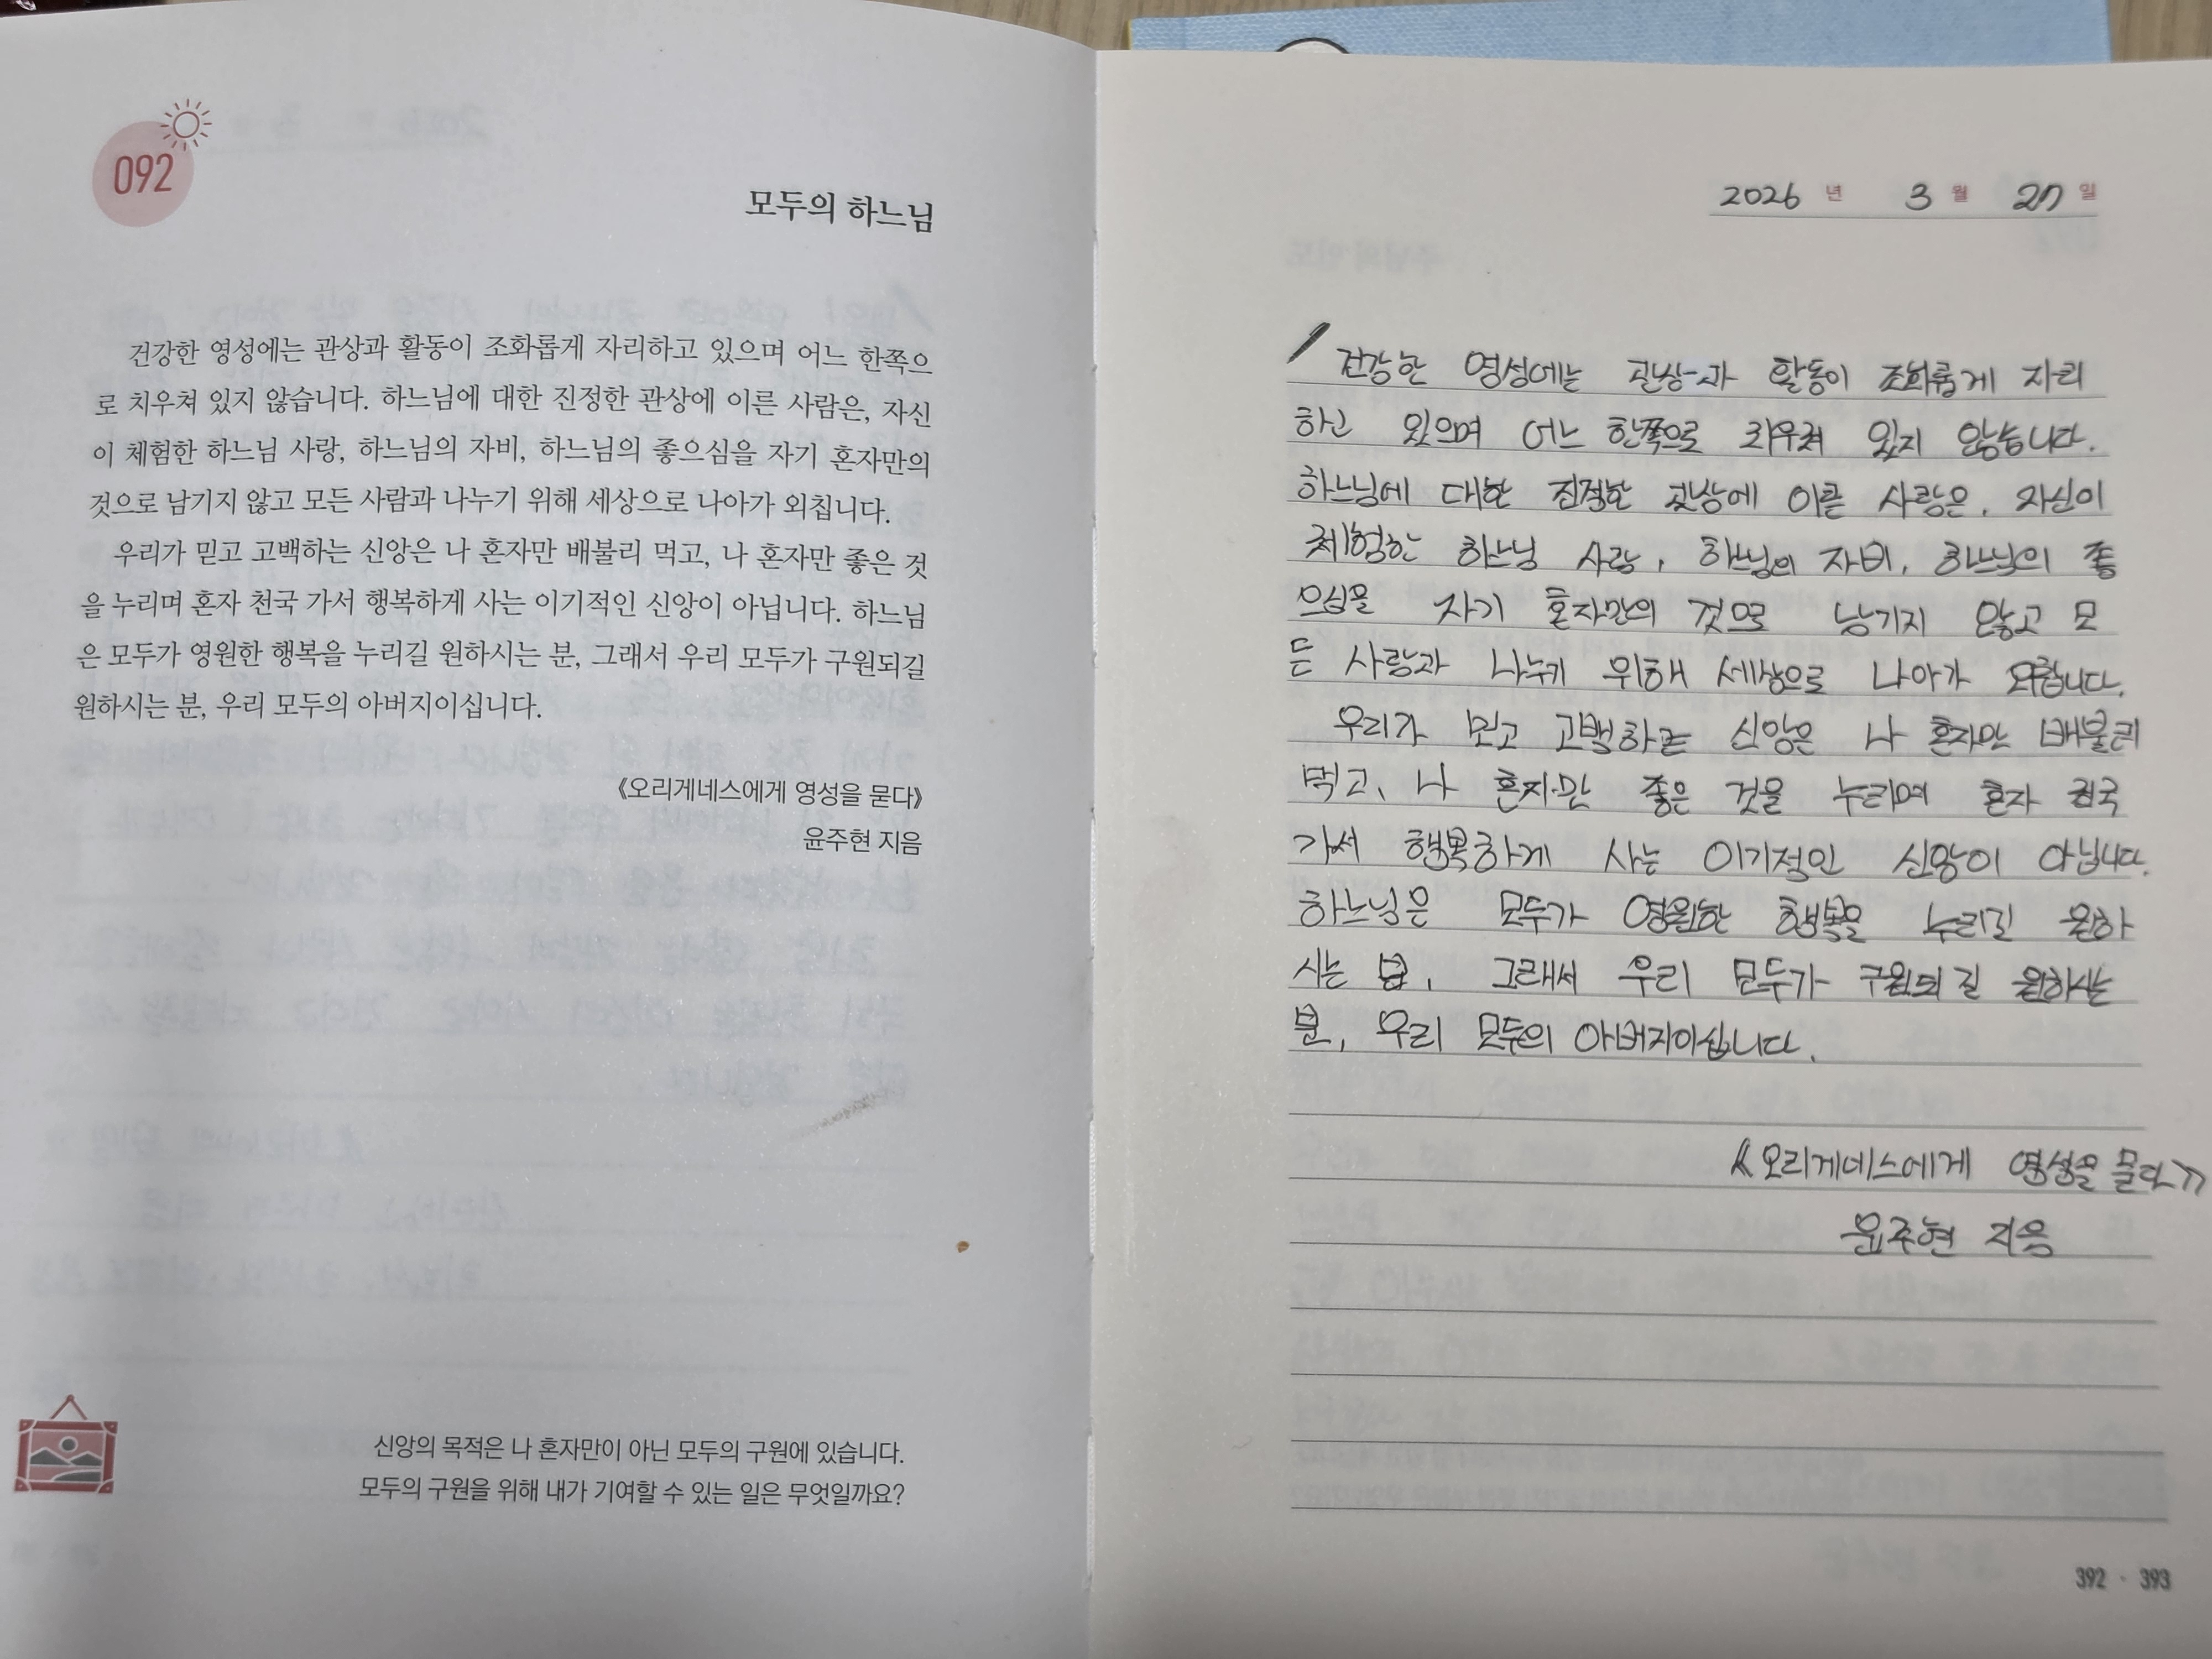 092
모두의 하느님
건강한 영성에는 관상과 활동이 조화롭게 자리하고 있으며 어느 한쪽으
로 치우쳐 있지 않습니다. 하느님에 대한 진정한 관상에 이른 사람은, 자신
이 체험한 하느님 사랑, 하느님의 자비, 하느님의 좋으심을 자기 혼자만의
것으로 남기지 않고 모든 사람과 나누기 위해 세상으로 나아가 외칩니다.
우리가 믿고 고백하는 신앙은 나 혼자만 배불리 먹고, 나 혼자만 좋은 것
을 누리며 혼자 천국 가서 행복하게 사는 이기적인 신앙이 아닙니다. 하느님
은 모두가 영원한 행복을 누리길 원하시는 분, 그래서 우리 모두가 구원되길
원하시는 분, 우리 모두의 아버지이십니다.
《오리게네스에게 영성을 묻다》
윤주현 지음
신앙의 목적은 나 혼자만이 아닌 모두의 구원에 있습니다.
모두의 구원을 위해 내가 기여할 수 있는 일은 무엇일까요?
2026 년 3 월 27 일
건강한 영성에는 관상과 활동이 조화롭게 자리
하고 있으며 어느 한쪽으로 치우쳐 있지 않습니다.
하느님에 대한 진정한 관상에 이른 사람은, 자신이
체험한 하느님 사랑, 하느님의 자비, 하느님의 좋
으심을 자기 혼자만의 것으로 남기지 않고 모
든 사람과 나누기 위해 세상으로 나아가 외칩니다.
우리가 믿고 고백하는 신앙은 나 혼자만 배불리
먹고, 나 혼자만 좋은 것을 누리며 혼자 천국
가서 행복하게 사는 이기적인 신앙이 아닙니다.
하느님은 모두가 영원한 행복을 누리길 원하
시는 분, 그래서 우리 모두가 구원되길 원하시는
분, 우리 모두의 아버지이십니다.
《오리게네스에게 영성을 묻다》
윤주현 지음
392 · 393